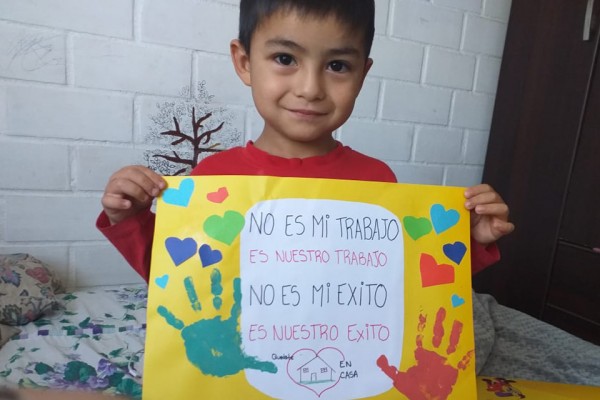 NO ES MI TRABAJO
ES NUESTRO TRABAJO
NO ES MI EXITO
ES NUESTRO EXITO
EN
CASA